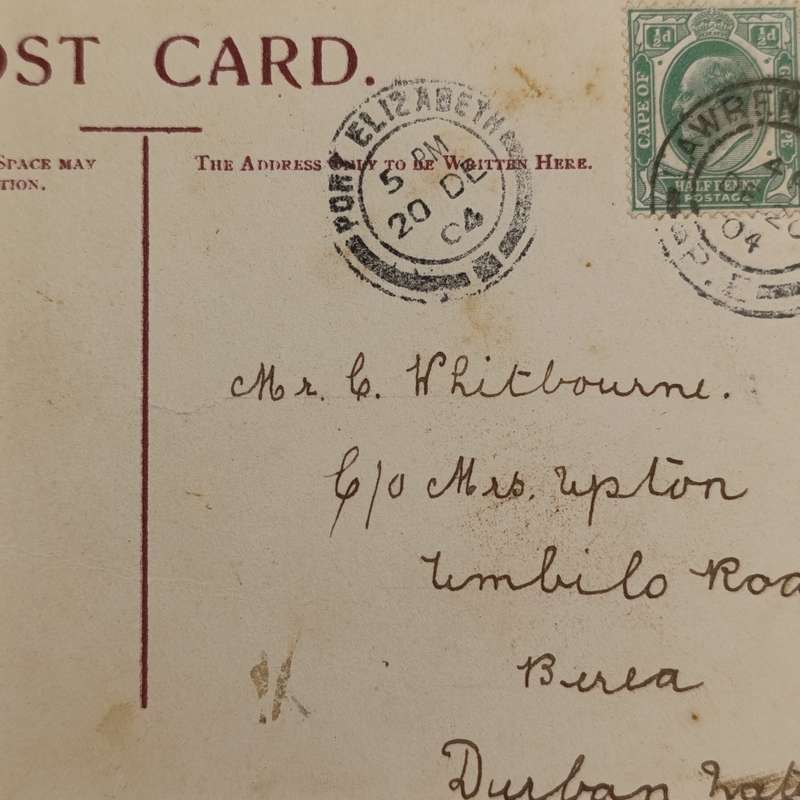 OST CARD.
SPACE MAY
TION.
THE ADDRESS ONLY TO BE WRITTEN HERE.
PORT ELIZABETH
5 PM
20 DE
04
½d ½d
CAPE OF
HALFPENNY
POSTAGE
04
Mr. C. Whitbourne.
C/o Mrs. Upton
Umbilo Roa
Berea
Durban Nat